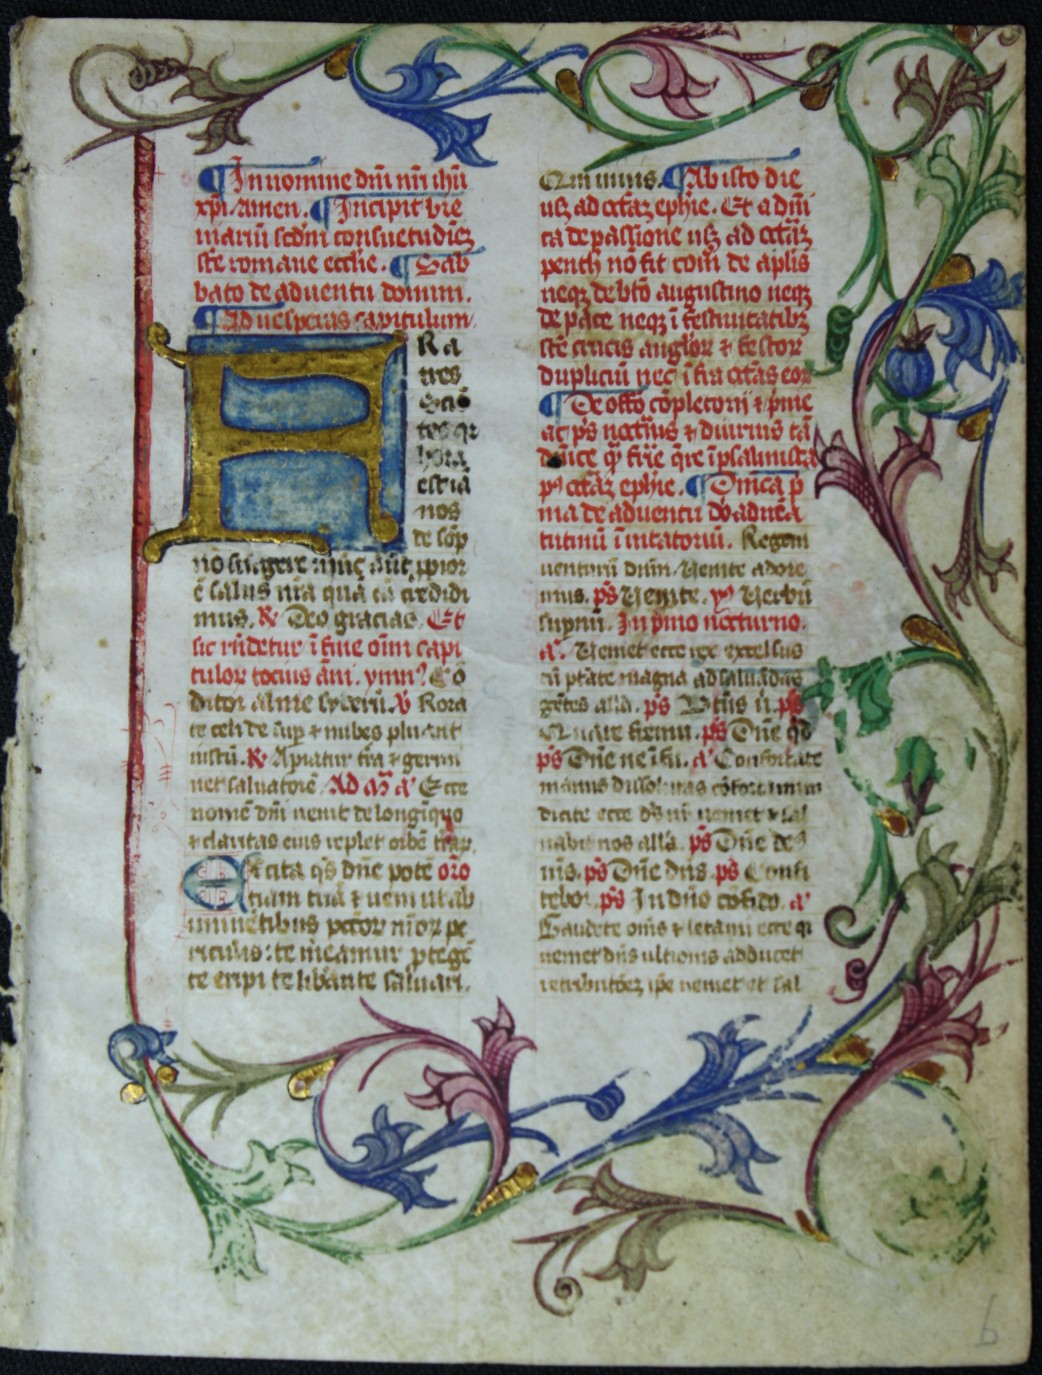 In nomine dni nri ihu
xpi. Amen. Incipit bre
uiariu scdm consuetudiez
ste romane ecclie. Sab
bato de aduentu domini.
Ad uesperas capitulum.
Ra
tres
Scie
tes qr
hora
est ia
nos
de sop
no surgere nuc aut ppior
e salus nra qua cu credidi
mus. R Deo gracias. Et
sic rndetur i fine oim capi
tulor tocius ani. ymn? Co
ditor alme syderu. V Rora
te celi de sup et nubes pluant
iustu. R Apiatur tra et germ
net saluatore Ad M a Ecce
nome dni uenit de longiquo
et claritas eius replet orbe trar.
Excita qs dne pote oro
tiam tua et ueni ut ab
iminetibus pctor nror pe
riculis: te meamur ptege
te eripi te libante saluari.
Qui uiuis. Ab isto die
usz ad octaz ephie. Et a dni
ca de passione usz ad octaz
penth no fit com de aplis
neqz de bto augustino neqz
de pace neqz i festiuitatibz
ste crucis anglor et festor
dupliciu nec ifra octas eor
De offo copletorij et pme
ac ps nocturns et diurnis ta
dnice q ferie qre i psalmista
p octaz ephie. Dnica p
ma de aduentu do aduen
tutinu inuitatoriu. Regem
uenturu dnm. Uenite adore
mus. ps Uenite. y Uerbu
supnu. In pmo nocturno.
a. Ueniet ecce rex excelsus
cu ptate magna ad saluadas
getes alla. ps Btus ui. ps
Quare fremu. ps Dne qd
ps Dne ne i fu. a Confortate
manus dissolutas cofortamini
dicite ecce ds nr ueniet et sal
uabit nos alla. ps Dne des
us. ps Dne dns ps Confi
tebor. ps In dno cofido. a
Gaudete oms et letami ecce qr
ueniet dns ultionis adducet
retributoez ipe ueniet et sal
6